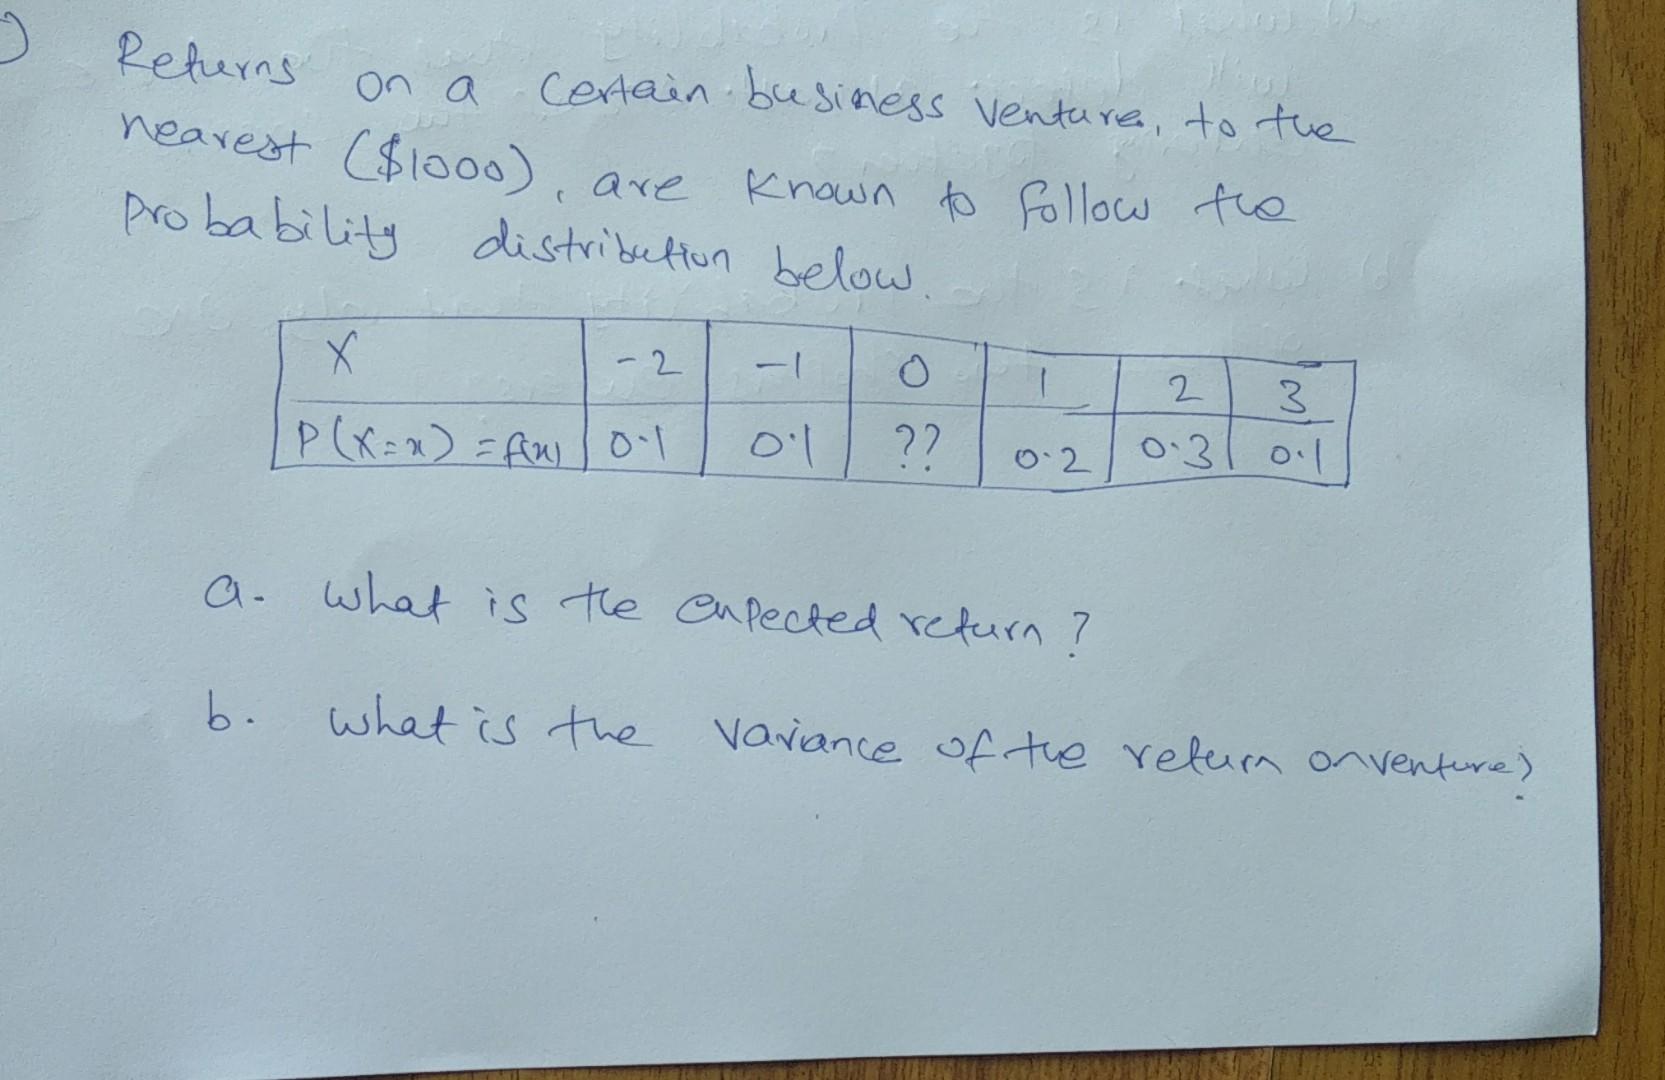 Returns on a certain business venture, to the
nearest ($1000), are known to follow the
probability distribution below.
X -2 -1 0 1 2 3
P(X=x) = f(x) 0.1 0.1 ?? 0.2 0.3 0.1
a. what is the expected return?
b. what is the variance of the return on venture?